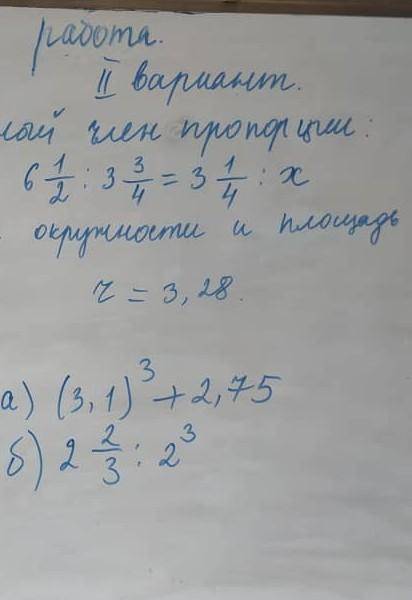 работа.
II вариант.
член пропорции:
6 1/2 : 3 3/4 = 3 1/4 : x
окружности и площадь
r = 3,28.
а) (3,1)³ + 2,75
б) 2 2/3 : 2³